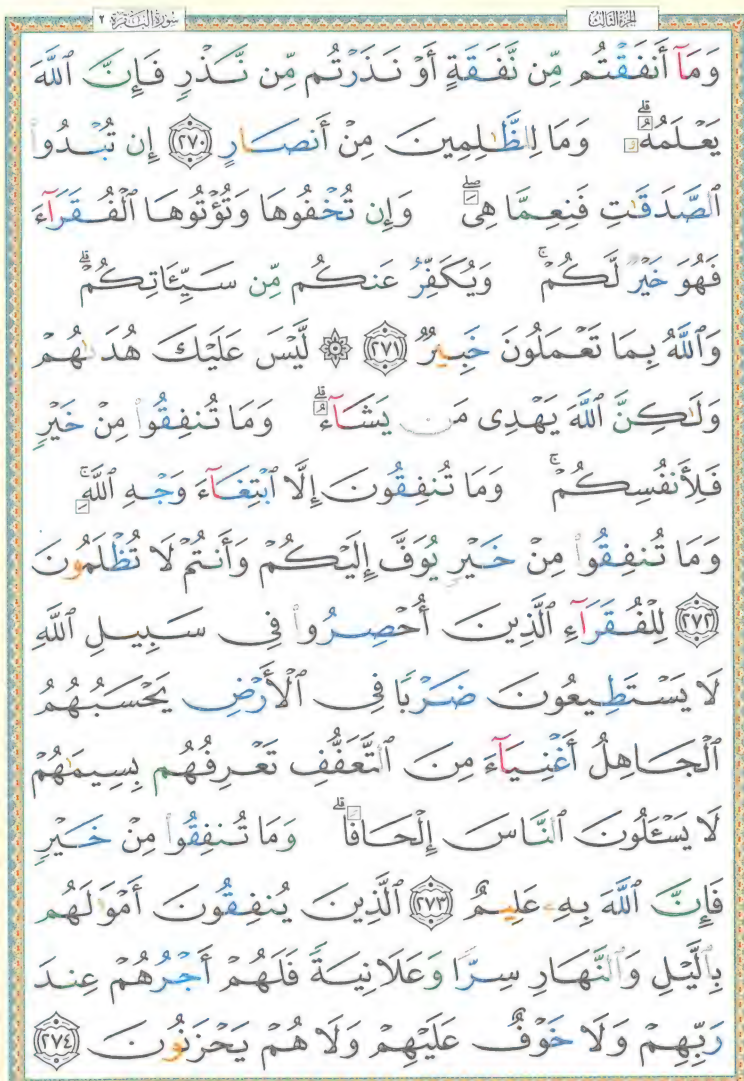 الجزء الثالث سورة البقرة ٢
وَمَآ أَنفَقْتُم مِّن نَّفَقَةٍ أَوْ نَذَرْتُم مِّن نَّذْرٍ فَإِنَّ ٱللَّهَ
يَعْلَمُهُۥ ۗ وَمَا لِلظَّٰلِمِينَ مِنْ أَنصَارٍ ﴿٢٧٠﴾ إِن تُبْدُوا۟
ٱلصَّدَقَٰتِ فَنِعِمَّا هِىَ ۖ وَإِن تُخْفُوهَا وَتُؤْتُوهَا ٱلْفُقَرَآءَ
فَهُوَ خَيْرٌ لَّكُمْ ۚ وَيُكَفِّرُ عَنكُم مِّن سَيِّـَٔاتِكُمْ ۗ
وَٱللَّهُ بِمَا تَعْمَلُونَ خَبِيرٌ ﴿٢٧١﴾ ۞ لَّيْسَ عَلَيْكَ هُدَىٰهُمْ
وَلَٰكِنَّ ٱللَّهَ يَهْدِى مَن يَشَآءُ ۗ وَمَا تُنفِقُوا۟ مِنْ خَيْرٍ
فَلِأَنفُسِكُمْ ۚ وَمَا تُنفِقُونَ إِلَّا ٱبْتِغَآءَ وَجْهِ ٱللَّهِ ۚ
وَمَا تُنفِقُوا۟ مِنْ خَيْرٍ يُوَفَّ إِلَيْكُمْ وَأَنتُمْ لَا تُظْلَمُونَ
﴿٢٧٢﴾ لِلْفُقَرَآءِ ٱلَّذِينَ أُحْصِرُوا۟ فِى سَبِيلِ ٱللَّهِ
لَا يَسْتَطِيعُونَ ضَرْبًا فِى ٱلْأَرْضِ يَحْسَبُهُمُ
ٱلْجَاهِلُ أَغْنِيَآءَ مِنَ ٱلتَّعَفُّفِ تَعْرِفُهُم بِسِيمَٰهُمْ
لَا يَسْـَٔلُونَ ٱلنَّاسَ إِلْحَافًا ۗ وَمَا تُنفِقُوا۟ مِنْ خَيْرٍ
فَإِنَّ ٱللَّهَ بِهِۦ عَلِيمٌ ﴿٢٧٣﴾ ٱلَّذِينَ يُنفِقُونَ أَمْوَٰلَهُم
بِٱلَّيْلِ وَٱلنَّهَارِ سِرًّا وَعَلَانِيَةً فَلَهُمْ أَجْرُهُمْ عِندَ
رَبِّهِمْ وَلَا خَوْفٌ عَلَيْهِمْ وَلَا هُمْ يَحْزَنُونَ ﴿٢٧٤﴾